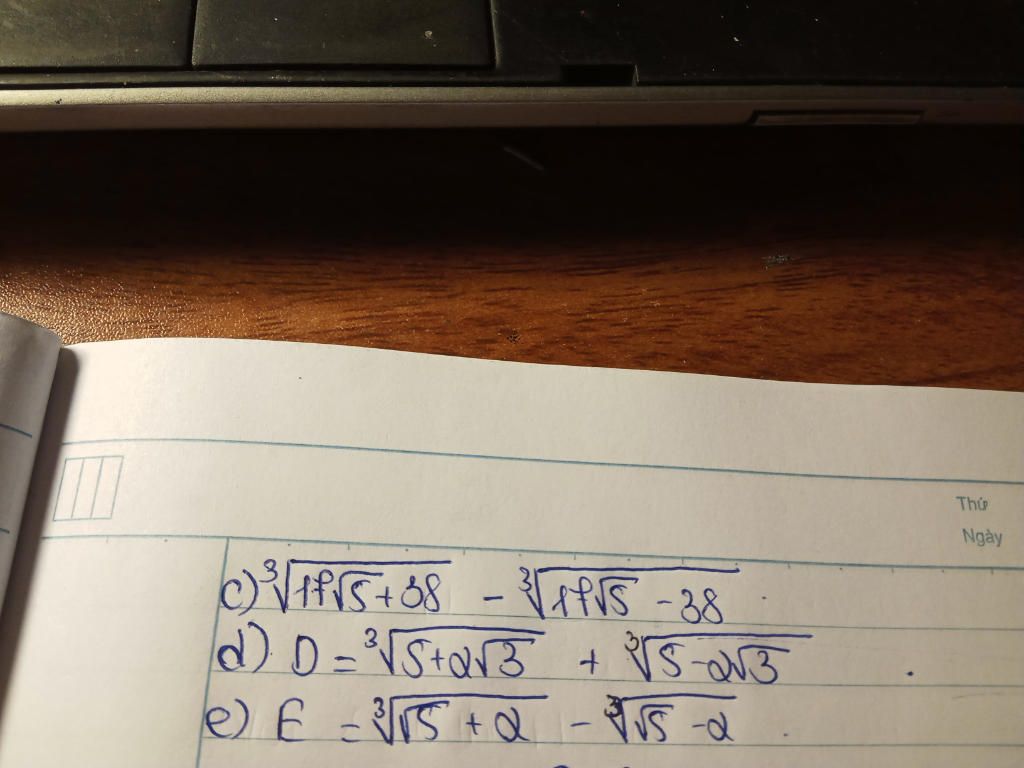 Thứ
Ngày
c) ∛(17√5 + 38) - ∛(17√5 - 38)
d) D = ∛(5+2√3) + ∛(5-2√3)
e) E = ∛(√5 + 2) - ∛(√5 - 2)